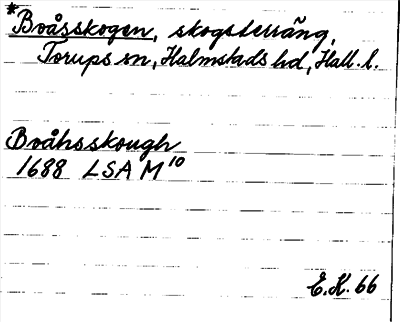 *Bråsskogen, skogsterräng,
Torups sn, Halmstads hd, Hall. l.
Bråhsskough
1688 LSA M 10
E.K. 66